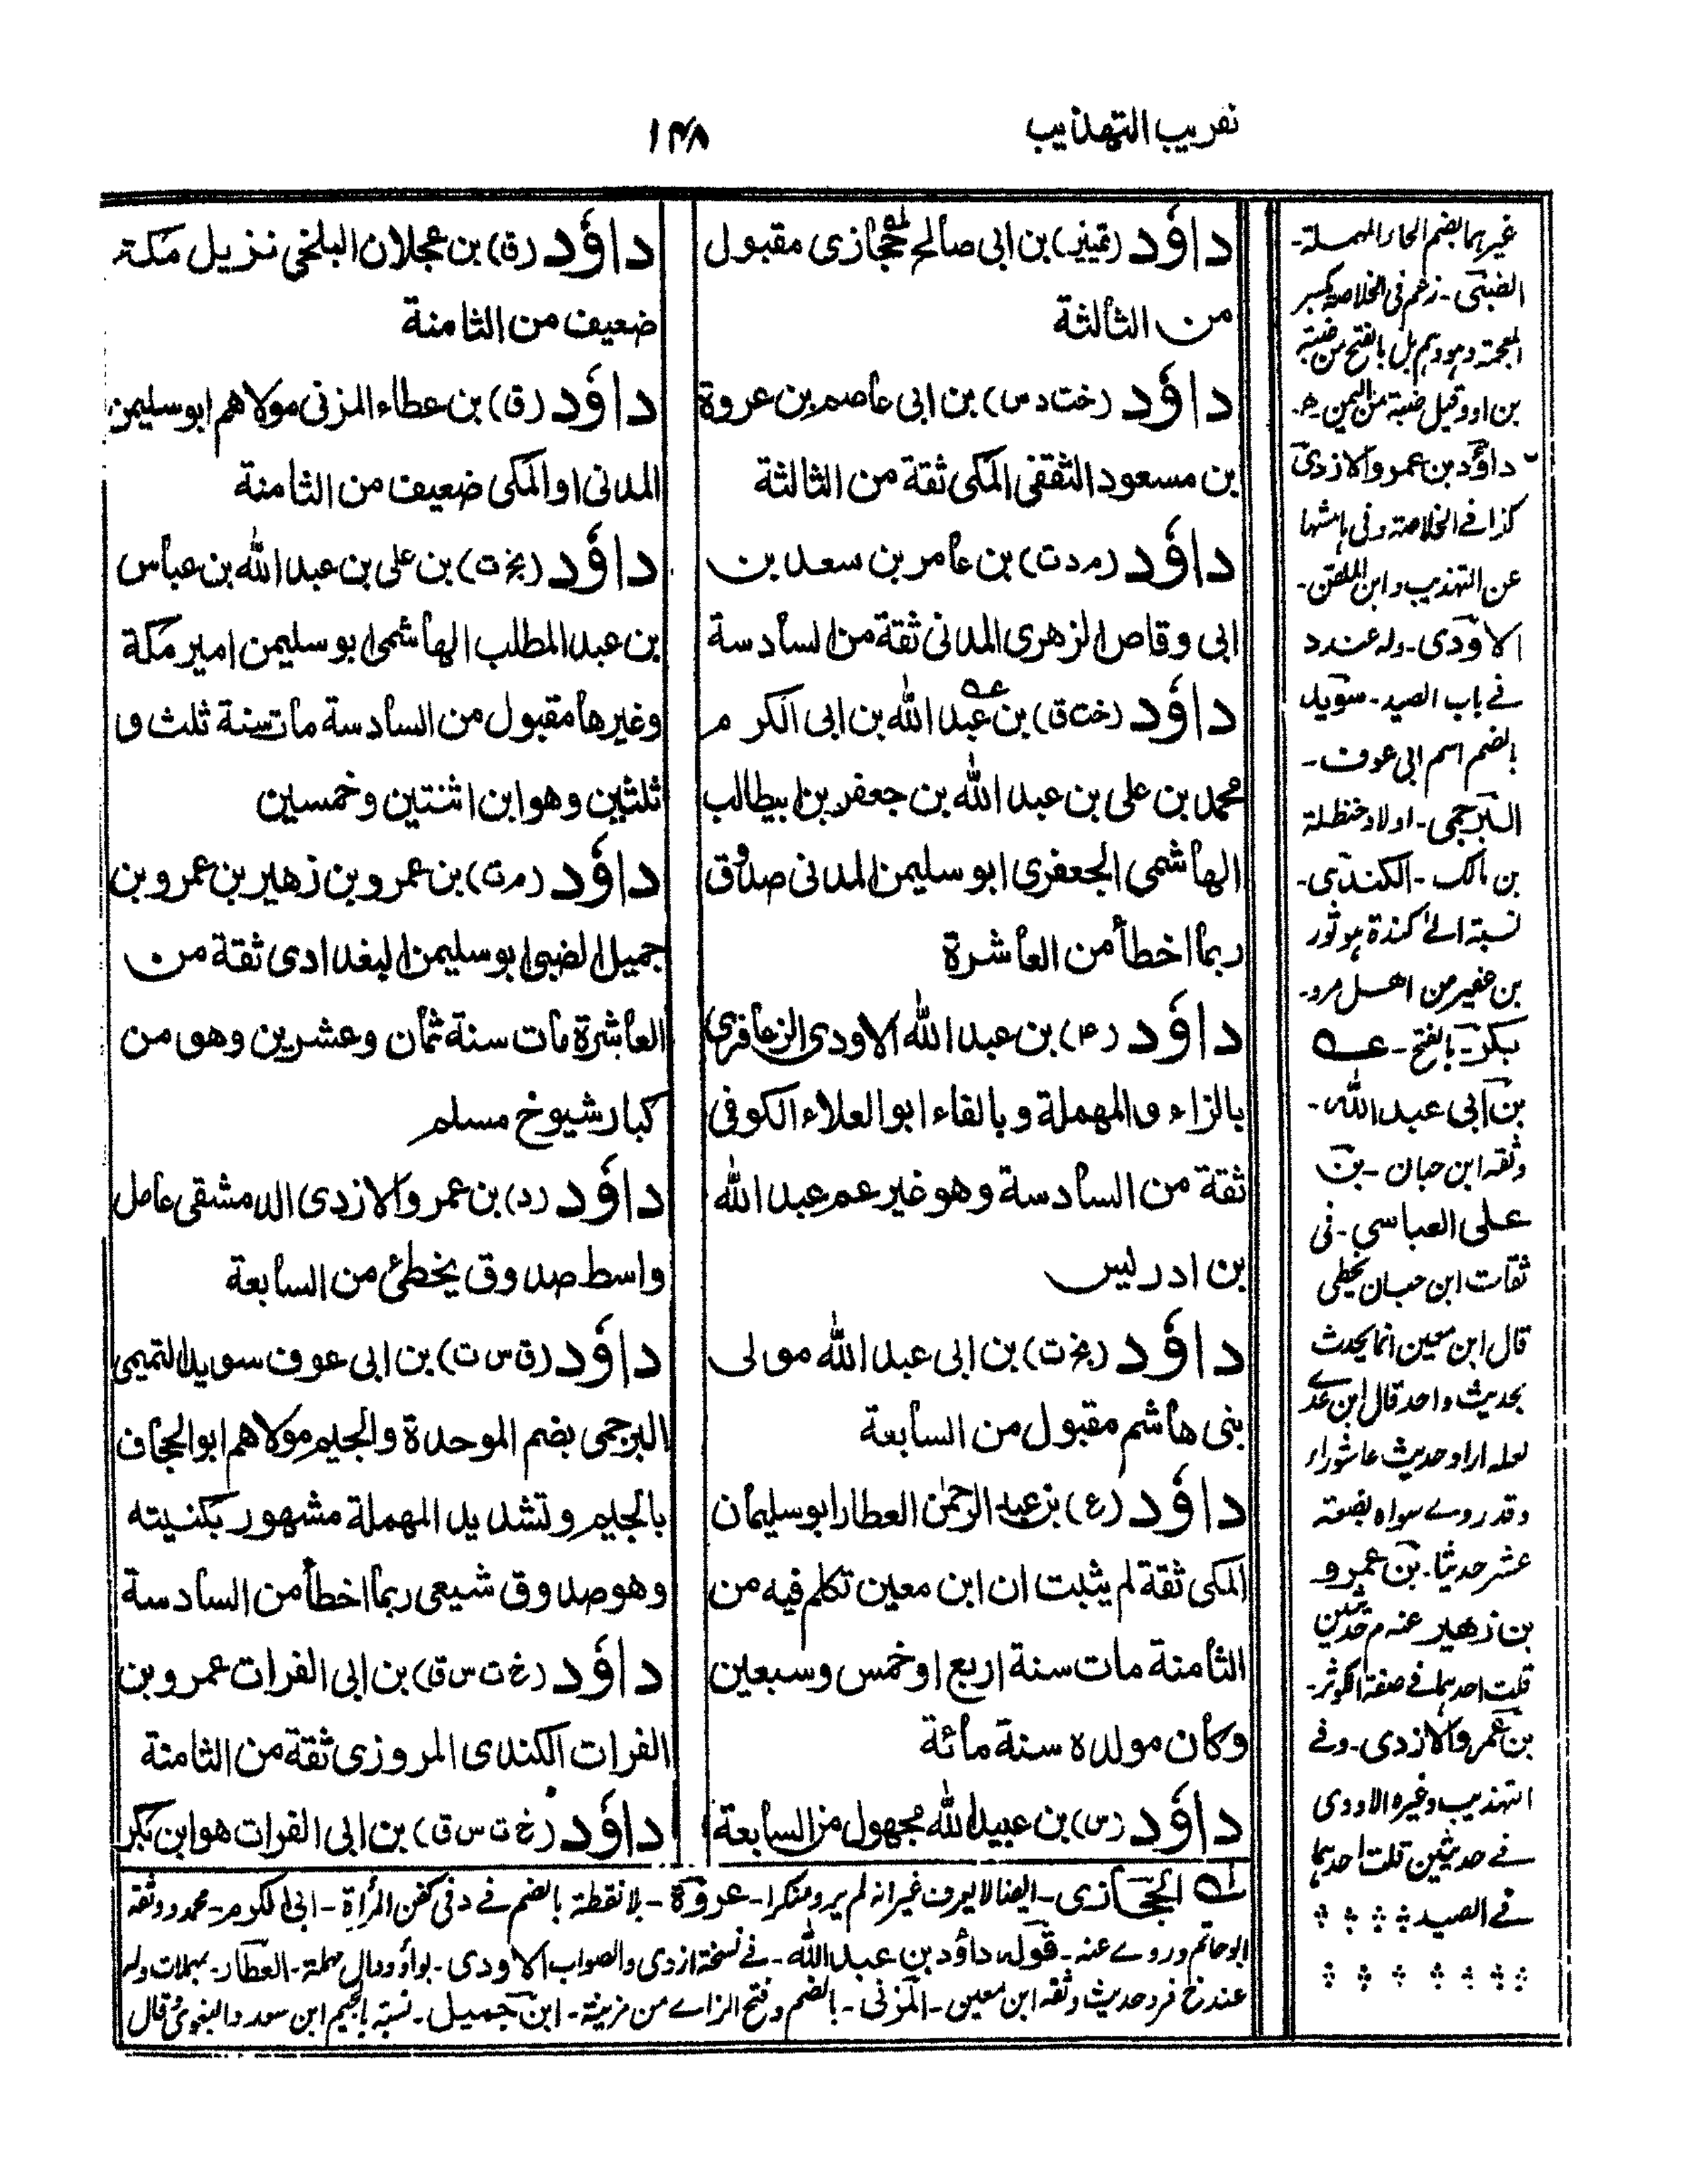 تقريب التهذيب
١٣٨
داؤد (تمييز) بن ابى صالح حجازى مقبول
من الثالثة
داؤد (خت د س) بن ابى عاصم بن عروة
بن مسعود الثقفى المكى ثقة من الثالثة
داؤد (م د ت) بن عامر بن سعد بن
ابى وقاص الزهرى المدنى ثقة من السادسة
داؤد (خت ق) بن عبد الله بن ابى الكرم
محمد بن على بن عبد الله بن جعفر بن ابيطالب
الهاشمى الجعفرى ابو سليمن المدنى صدوق
ربما اخطأ من العاشرة
داؤد (٤) بن عبد الله الاودى الزعافرى
بالزاء والمهملة وبالفاء ابو العلاء الكوفى
ثقة من السادسة وهو غير عم عبد الله
بن ادريس
داؤد (بخ ت) بن ابى عبد الله مولى
بنى هاشم مقبول من السابعة
داؤد (ع) بن عبد الرحمن العطار ابو سليمان
المكى ثقة لم يثبت ان ابن معين تكلم فيه من
الثامنة مات سنة اربع او خمس وسبعين
وكان مولده سنة مائة
داؤد (س) بن عبيد الله مجهول من السابعة
داؤد (ق) بن عجلان البلخي نزيل مكة
ضعيف من الثامنة
داؤد (ق) بن عطاء المزنى مولاهم ابو سليمن
المدنى او المكى ضعيف من الثامنة
داؤد (بخ ت) بن على بن عبد الله بن عباس
بن عبد المطلب الهاشمى ابو سليمن امير مكة
وغيرها مقبول من السادسة مات سنة ثلث و
ثلثين وهو ابن اثنتين وخمسين
داؤد (م ت) بن عمرو بن زهير بن عمرو بن
جميل الضبى ابو سليمن البغدادى ثقة من
العاشرة مات سنة ثمان وعشرين وهو من
كبار شيوخ مسلم
داؤد (د) بن عمرو الازدى الدمشقى عامل
واسط صدوق يخطئ من السابعة
داؤد (ق س ت) بن ابى عوف سويد التميمى
البرجمى بضم الموحدة والجيم مولاهم ابو الجحاف
بالجيم وتشديد المهملة مشهور بكنيته
وهو صدوق شيعى ربما اخطأ من السادسة
داؤد (خ ت س ق) بن ابى الفرات عمرو بن
الفرات الكندى المروزى ثقة من الثامنة
داؤد (خ ت س ق) بن ابى الفرات هو ابن بكر
غيرهما بضم الحاء المهملة۔
الضبى۔ زعم فى الخلاصة بكسر
المعجمة وهو وهم بل بالفتح من ضبة
بن اد وقيل ضبة من اليمن
داؤد بن عمرو الازدى
كذا فے الخلاصة وفى هامشها
عن التهذيب وابن الملقن۔
الاودى۔ وله عند د
فے باب الصيد۔ سويد
بالضم اسم ابى عوف۔
البرجمى۔ اولاد حنظلة
بن مالك۔ الكندى۔
نسبة الى كندة هو ثور
بن عفير من اهل مرو۔
بكر۔ بالفتح۔ عه
بن ابى عبد الله۔
وثقه ابن حبان۔ بن
على العباسى۔ فى
ثقات ابن حبان يخطى
قال ابن معين انما يحدث
بحديث واحد قال ابن عدے
لعله اراد حديث عاشوراء
وقد روے سواه بضعة
عشر حديثا۔ بن عمرو
بن زهير عنه م حديثين
قلت احدهما فے صفة الكوثر۔
بن عمرو الازدى۔ وفے
التهذيب وغيره الاودى
فے حديثين قلت احدهما
فے الصيد
له الحجازى۔ ايضا لا يعرف غير انه لم يرو منكرا۔ عروة۔ بلا نقطة بالضم فے د فى كفن المرأة۔ ابى الكرم۔ محمد ووثقه
ابو حاتم وروے عنه۔ قوله داؤد بن عبد الله۔ فے نسخة ازدى والصواب الاودى۔ بواو ودال مهملة۔ العطار۔ بمهملات وله
عند خ فرد حديث وثقه ابن معين۔ المزنى۔ بالضم وفتح الزاے من مزينة۔ ابن جميل۔ نسبة الجيم ابن سعد والبغوى قال